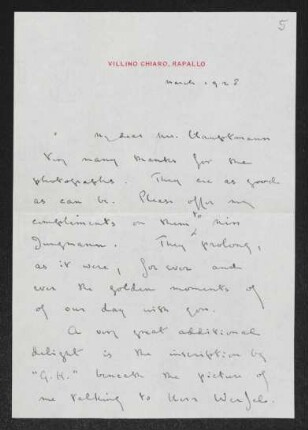 5
VILLINO CHIARO, RAPALLO
March 1928
My dear Mr. Hauptmann
Very many thanks for the
photographs. They are as good
as can be. Please offer my
compliments on them to Miss
Jungmann. They prolong,
as it were, for ever and
ever the golden moments of
of our day with you.
A very great additional
delight is the inscription by
"G. H." beneath the picture of
me talking to Herr Werfel.